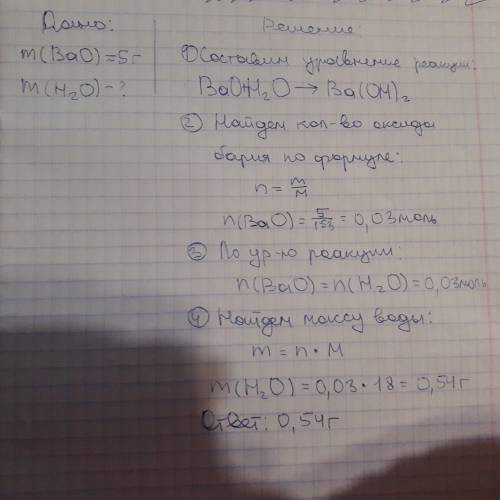 Дано:
m(BaO)=5г
m(H₂O)-?
Решение:
① Составим уравнение реакции:
BaO+H₂O→Ba(OH)₂
② Найдем кол-во оксида
бария по формуле:
n = m/M
n(BaO)=5/153=0,03моль
③ По ур-ю реакции:
n(BaO)=n(H₂O)=0,03моль
④ Найдем массу воды:
m=n·M
m(H₂O)=0,03·18=0,54г
Ответ: 0,54г